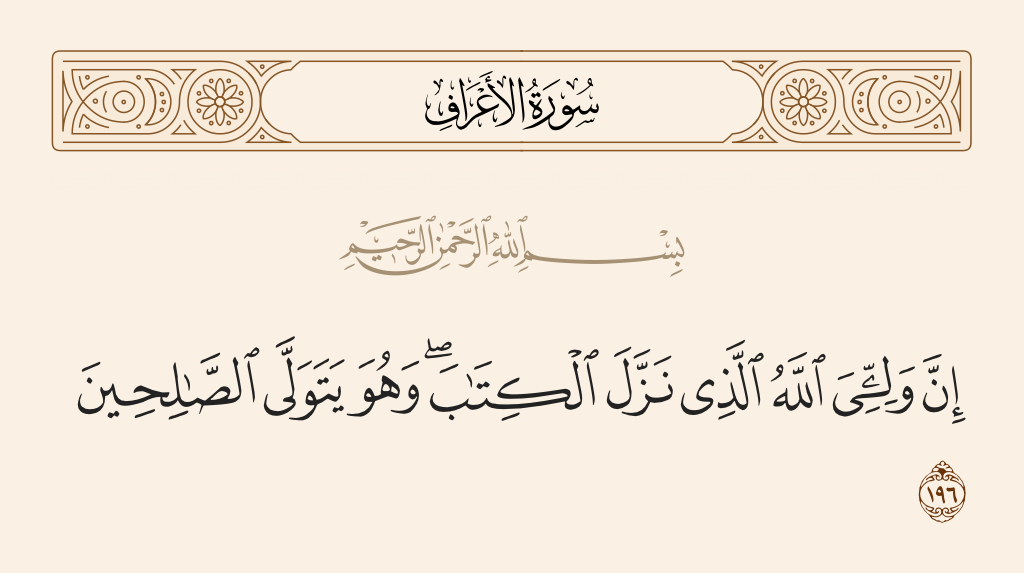 سُورَةُ الأَعْرَافِ
بِسْمِ ٱللَّهِ ٱلرَّحْمَٰنِ ٱلرَّحِيمِ
إِنَّ وَلِـِّۧىَ ٱللَّهُ ٱلَّذِى نَزَّلَ ٱلْكِتَٰبَ ۖ وَهُوَ يَتَوَلَّى ٱلصَّٰلِحِينَ
١٩٦